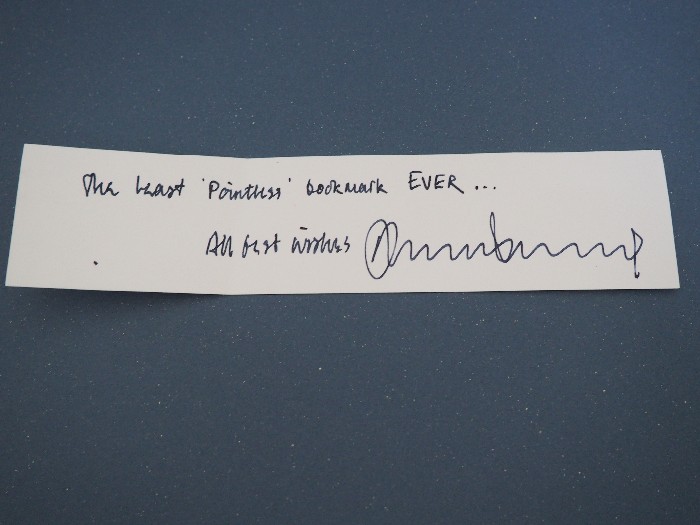 The least 'Pointless' bookmark EVER...
All best wishes